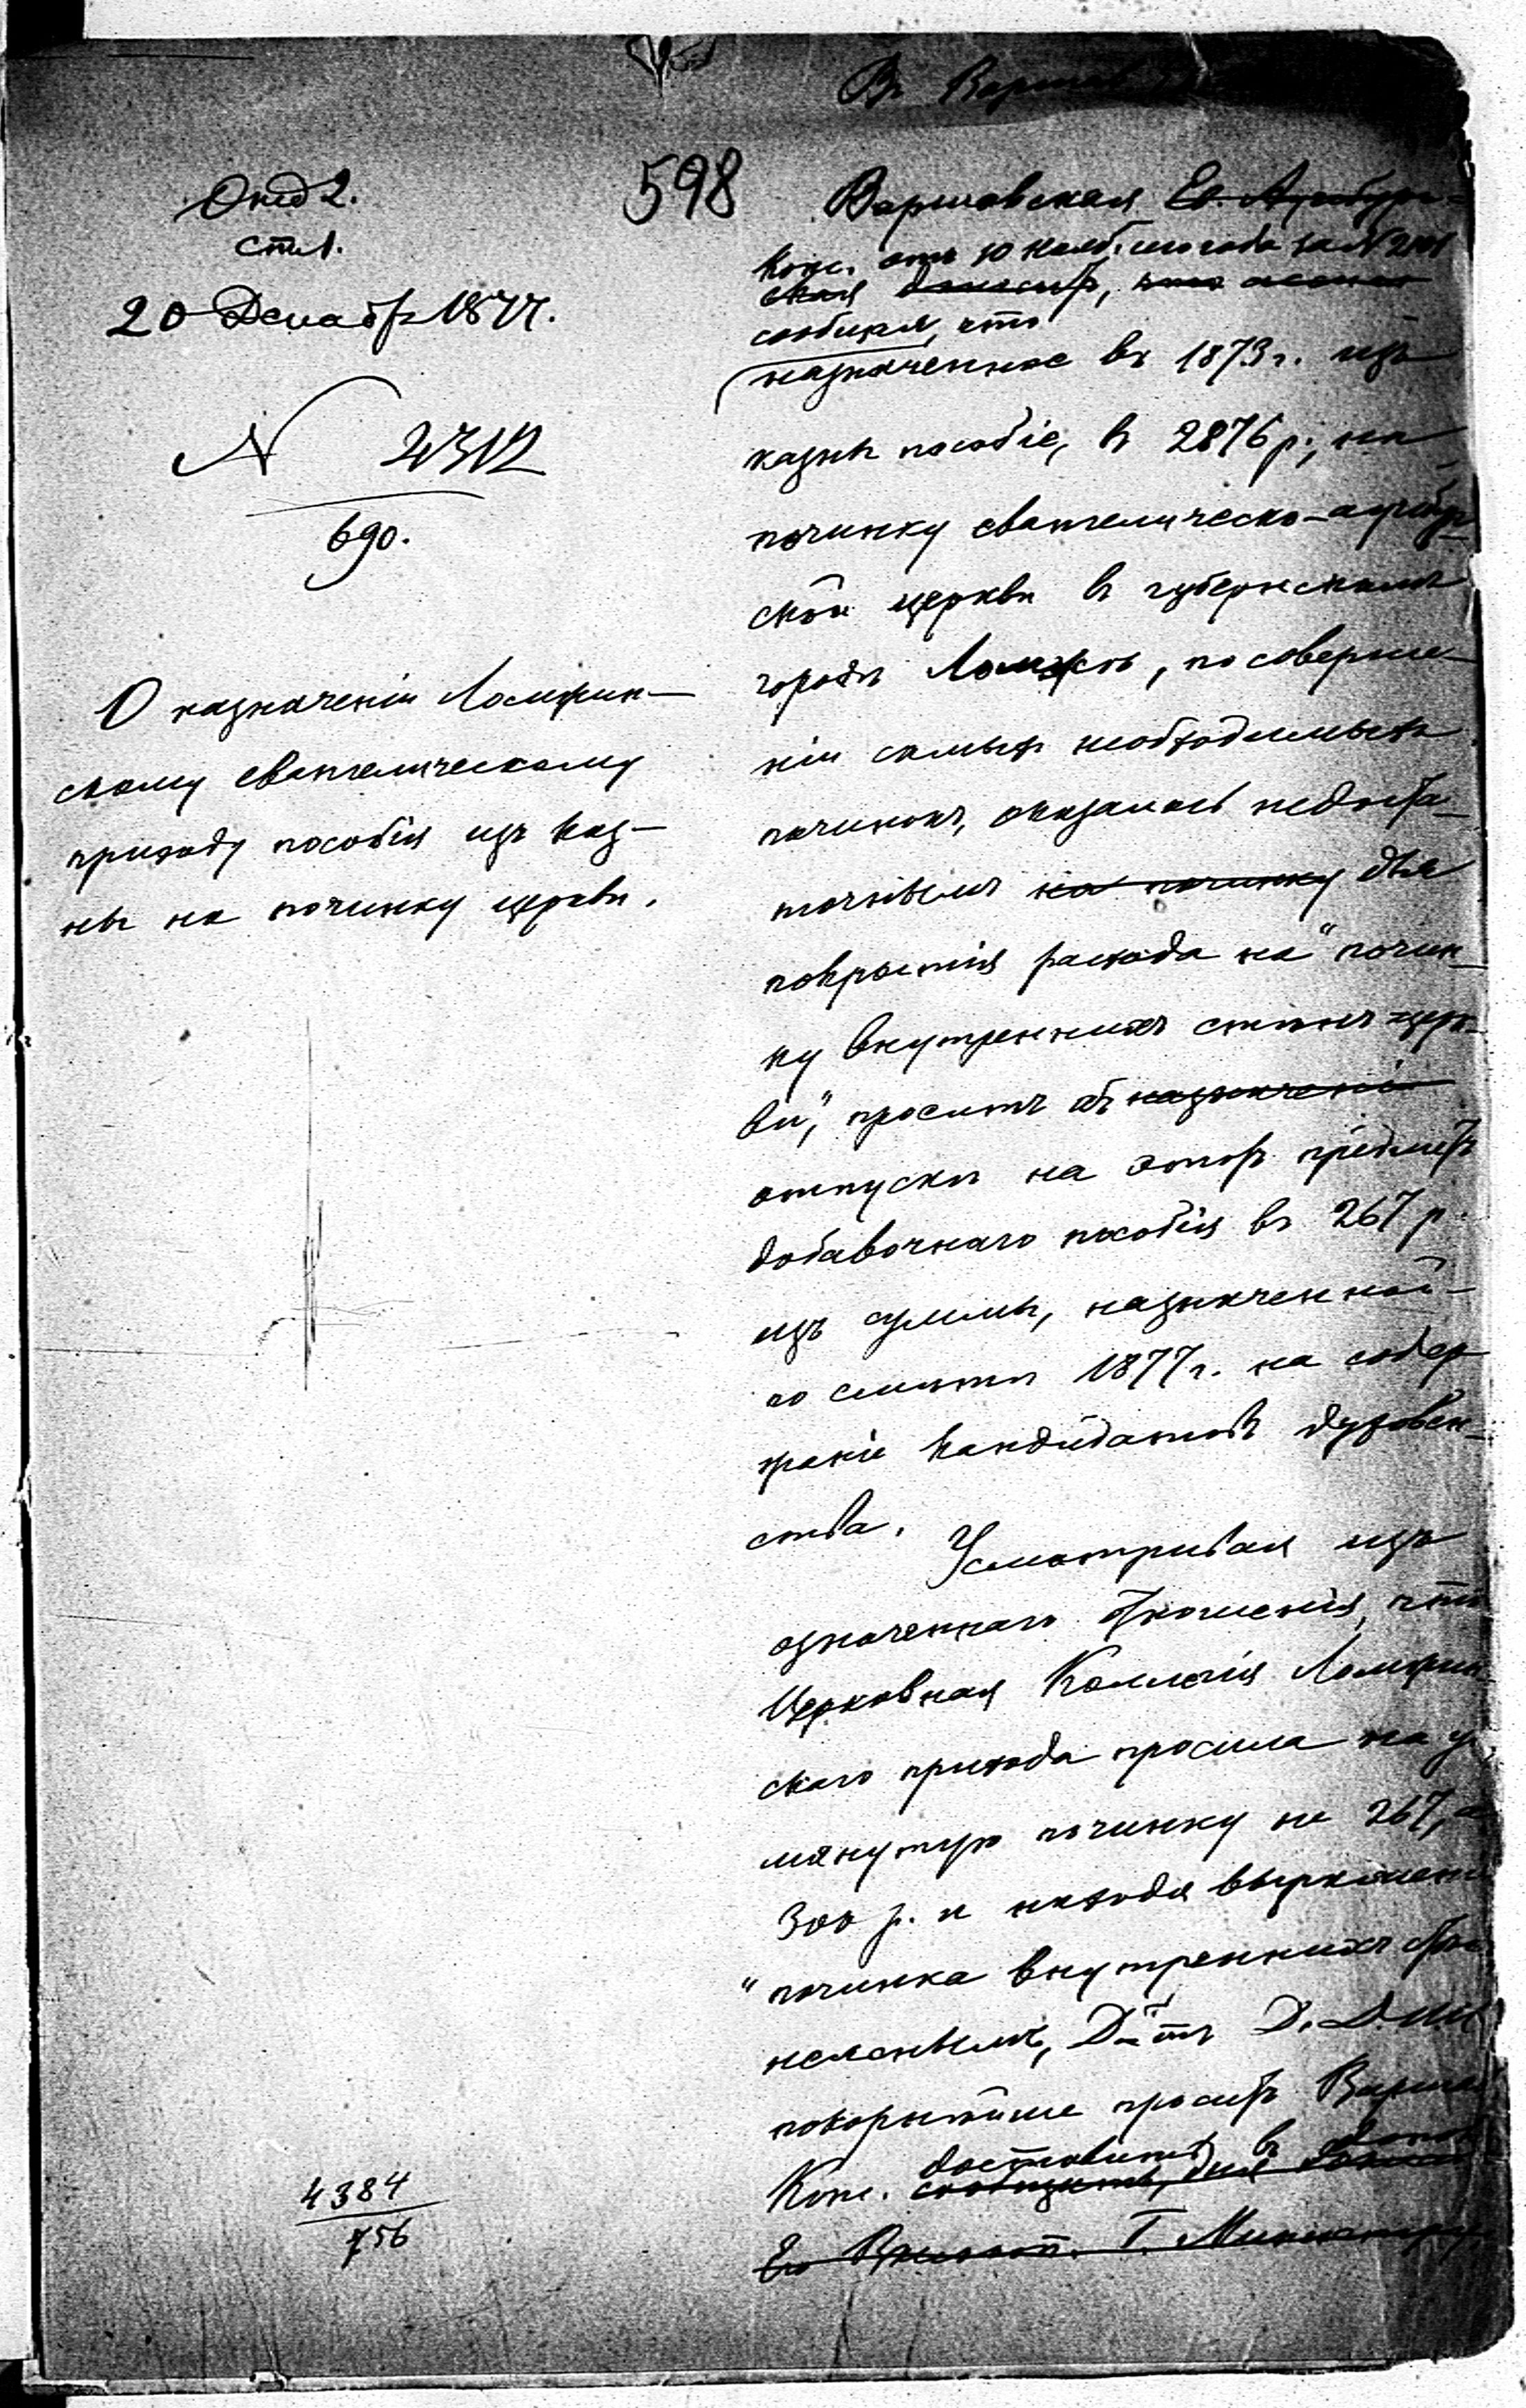 598
Отд 2.
Ст. 1.
20 Декабр 1877.
N 2312
690.
О назначеніи Ломжин-
скому евангелическому
приходу пособія изъ каз-
ны на починку церкви.
4384
756
Въ Варшав
Варшавская Ев. Аугсбург-
Конс. отъ 10 Нояб. сего года за N
ская доноситъ, что
сообщила, что
назначенное въ 1873 г. изъ
казны пособіе, въ 2876 р., на
починку евангелическо-аугсбург-
ской церкви въ губернскомъ
городѣ Ломжѣ, по соверше-
ніи самыхъ необходимыхъ
починокъ, оказалось недоста-
точнымъ на починку для
покрытія расхода на "почин-
ку внутреннихъ стѣнъ церк-
ви", проситъ объ назначеніи
отпускѣ на этотъ предметъ
добавочнаго пособія въ 267 р.
изъ суммы, назначенной
по смѣтѣ 1877 г. на содер-
жаніе кандидатовъ духовен-
ства.
Усматривая изъ
означеннаго отношенія, что
Церковная Коллегія Ломжин
скаго прихода просила на у
мянутую починку не 267, а
300 р. и находя выражен
"починка внутреннихъ стѣ
неяснымъ, Д-тъ Д. Д. И. И
покорнѣйше проситъ Варша
Конс. доставить въ
сообщить, для
Его Высокопр. Г. Министру